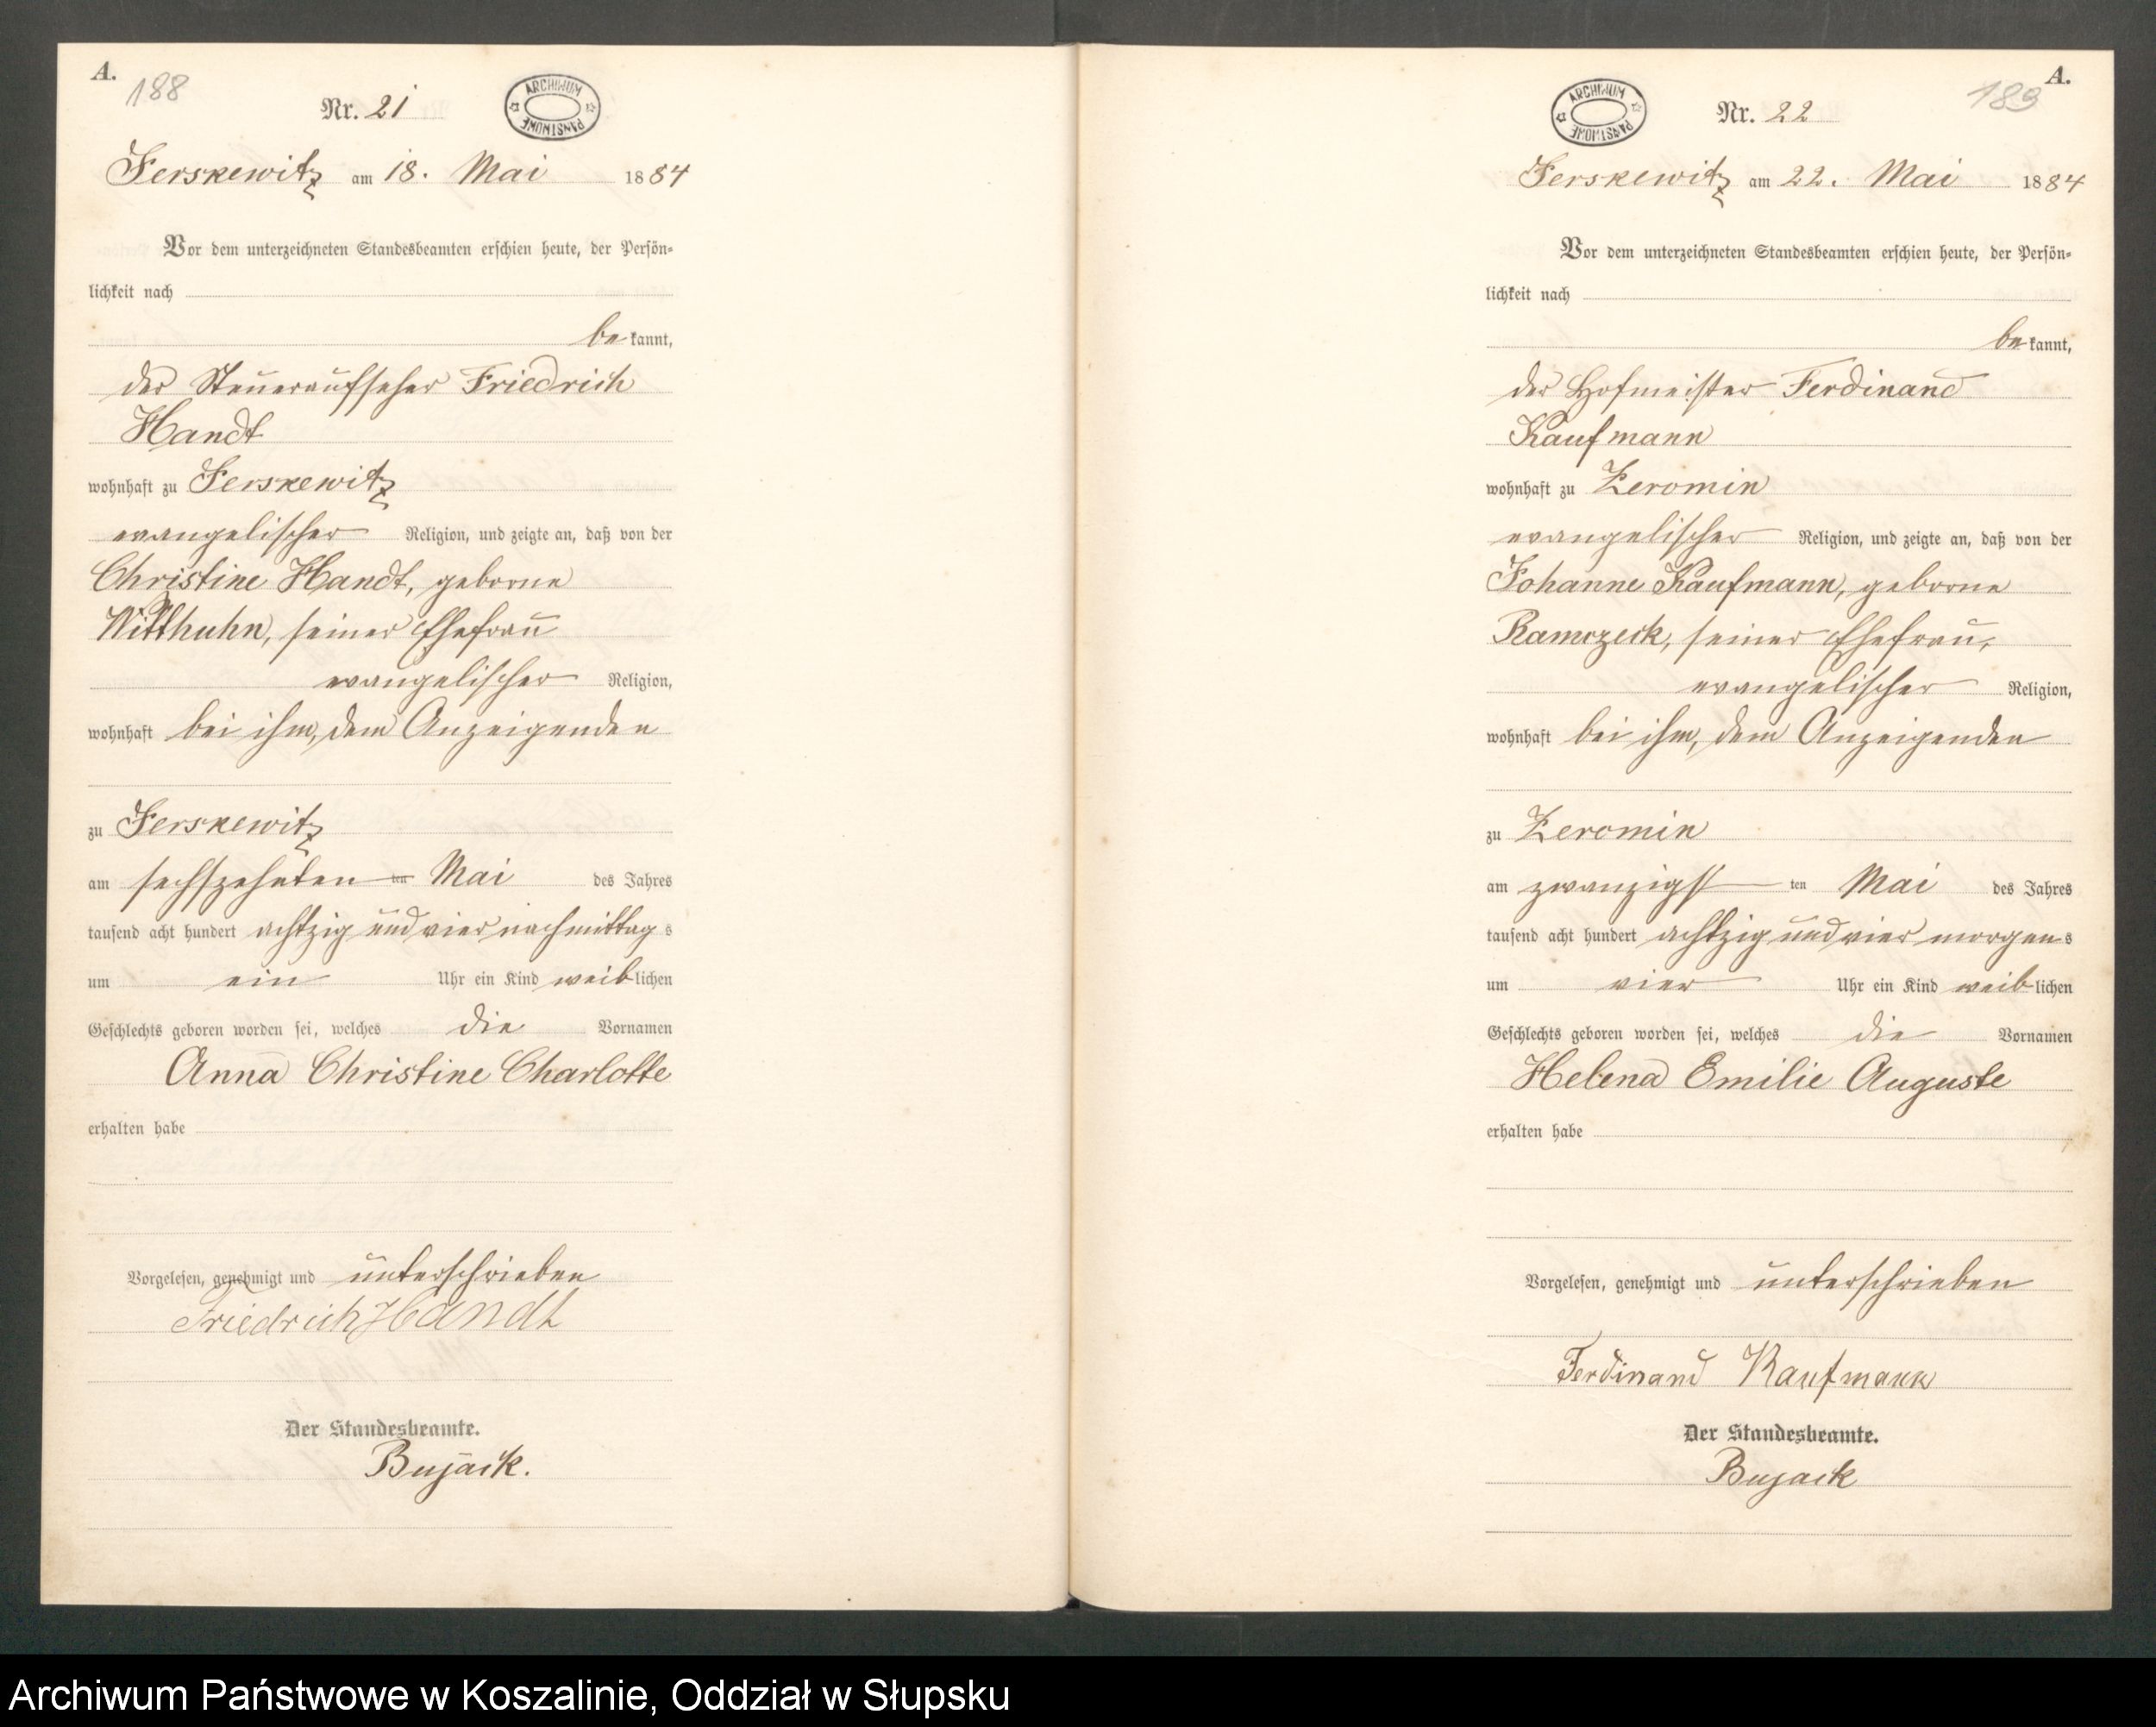 A.
188
Nr. 21
ARCHIWUM PAŃSTWOWE
Jerskewitz am 18. Mai 1884
Vor dem unterzeichneten Standesbeamten erschien heute, der Persön-
lichkeit nach
be kannt,
der Steueraufseher Friedrich
Handt
wohnhaft zu Jerskewitz
evangelischer Religion, und zeigte an, daß von der
Christine Handt, geborne
Witthuhn, seiner Ehefrau
evangelischer Religion,
wohnhaft bei ihm, dem Anzeigenden
zu Jerskewitz
am sechszehnten ten Mai des Jahres
tausend acht hundert achtzig und vier nachmittag s
um ein Uhr ein Kind weiblichen
Geschlechts geboren worden sei, welches die Vornamen
Anna Christine Charlotte
erhalten habe
Vorgelesen, genehmigt und unterschrieben
Friedrich Handt
Der Standesbeamte.
Bujack.
A.
189
Nr. 22
ARCHIWUM PAŃSTWOWE
Jerskewitz am 22. Mai 1884
Vor dem unterzeichneten Standesbeamten erschien heute, der Persön-
lichkeit nach
be kannt,
der Hofmeister Ferdinand
Kaufmann
wohnhaft zu Zeromin
evangelischer Religion, und zeigte an, daß von der
Johanne Kaufmann, geborne
Ramczeck, seiner Ehefrau,
evangelischer Religion,
wohnhaft bei ihm, dem Anzeigenden
zu Zeromin
am zwanzigst ten Mai des Jahres
tausend acht hundert achtzig und vier morgens
um vier Uhr ein Kind weiblichen
Geschlechts geboren worden sei, welches die Vornamen
Helena Emilie Auguste
erhalten habe
Vorgelesen, genehmigt und unterschrieben
Ferdinand Kaufmann
Der Standesbeamte.
Bujack
Archiwum Państwowe w Koszalinie, Oddział w Słupsku